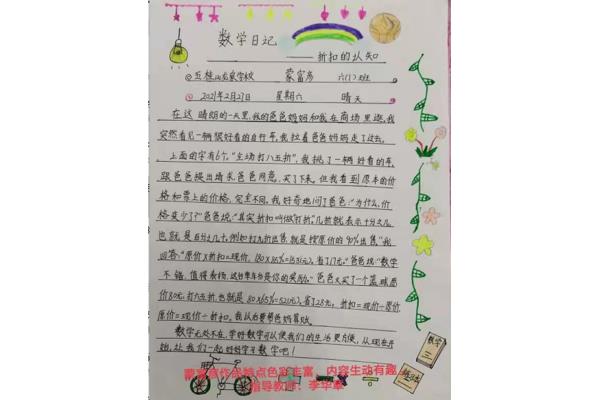 数学日记
——折扣的认知
◎五桂山长泉学校 蒙富彦 六(1)班
◎2021年2月27日 星期六 晴天
在这晴朗的一天里,我的爸爸妈妈和我在商场里逛,我
突然看见一辆很好看的自行车,我拉着爸爸妈妈走了过去,
上面的字有6个,"全场打八五折",我挑了一辆好看的车,
跟爸爸提出请求,爸爸同意,买了下来,但我看到原本的价
格和票上的价格,完全不同,我好奇地问了爸爸:"为什么,价
格变少了?"爸爸说:"其实折扣叫做打折,几折就表示十分之几,
也就是百分之几十,例如打九折出售,就是按原价的90%出售"我
回答:"原价×折扣=现价,180×85%=153(元),省了27元。"爸爸说:"数学
不错,值得表扬,这台单车也是你的奖励。"爸爸又买了一个篮球原
价80元,打六五折,也就是80×65%=52(元),省了28元,折扣=现价÷原价,
原价=现价÷折扣,我以后要帮爸妈算账。
数学无处不在,学好数学可以使我们的生活更方便,从现在开
始,让我们一起好好学习数学吧!
数学
三
练习本
蒙富彦作品特点色彩丰富,内容生动有趣
指导教师:李华章